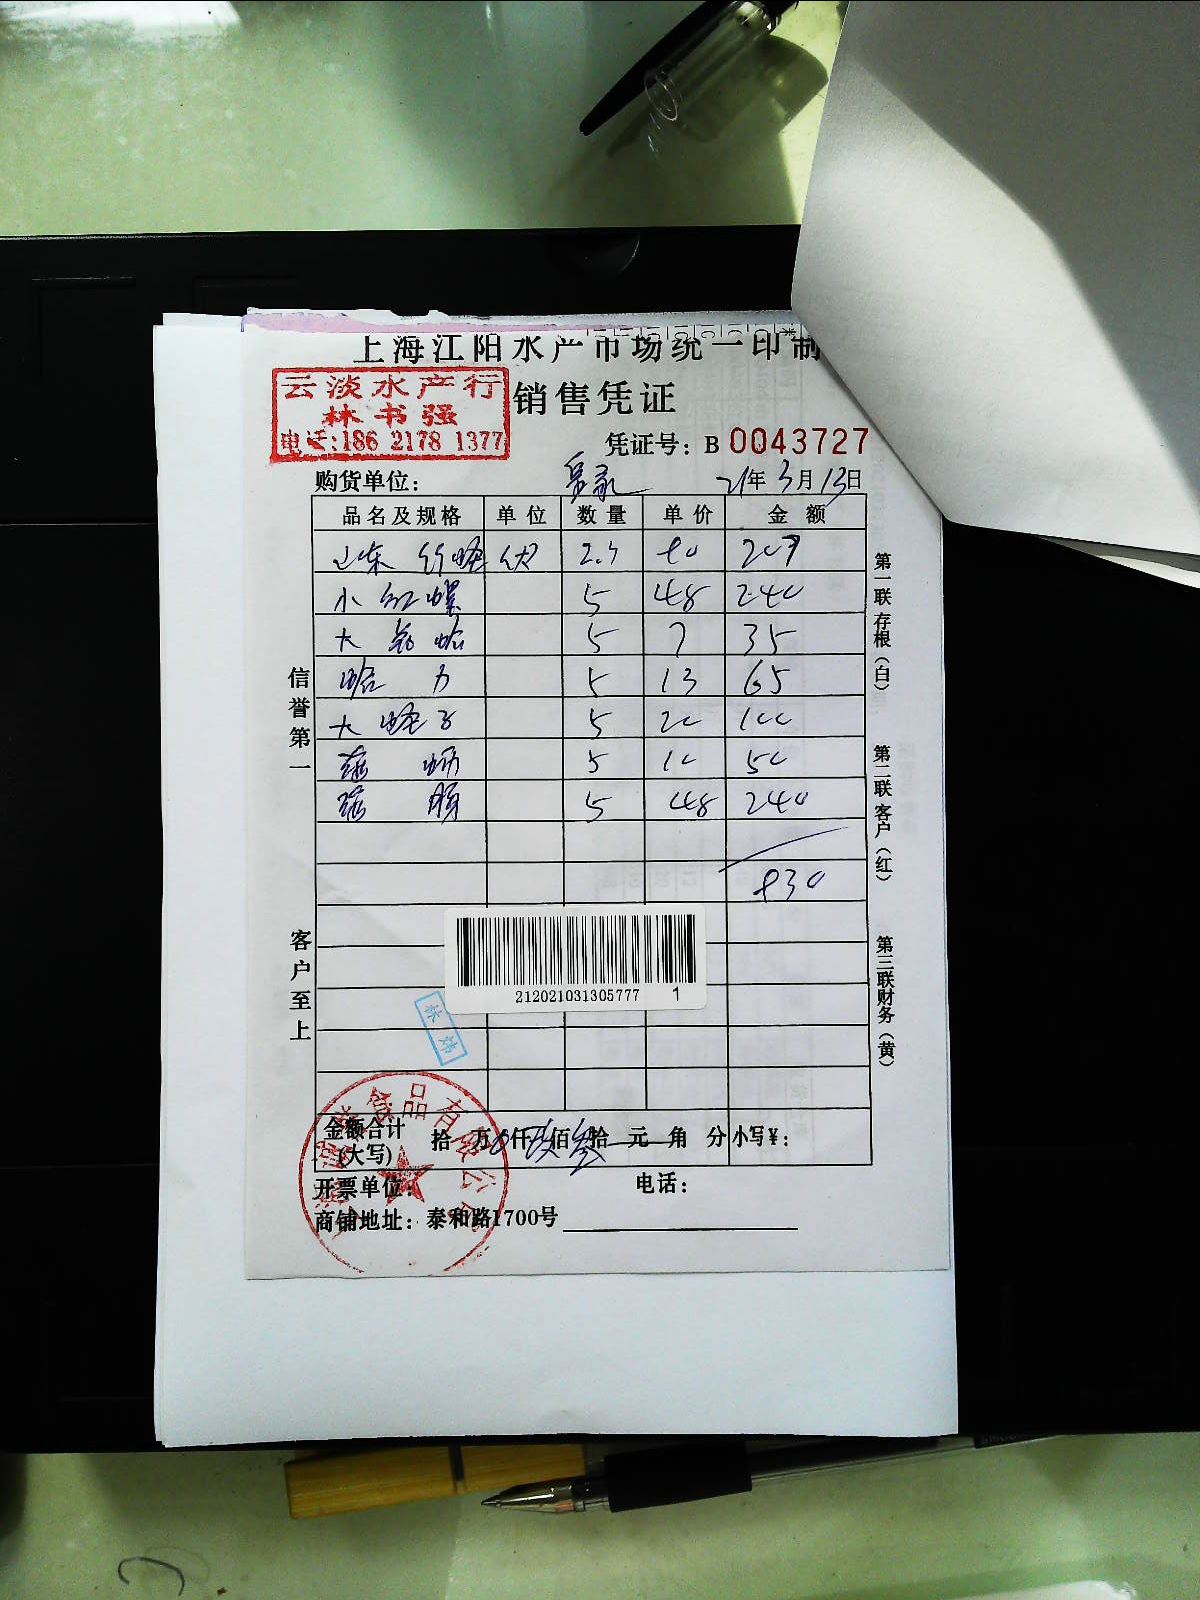 上海江阳水产市场统一印制
云淡水产行
林书强
电话:186 2178 1377
销售凭证
凭证号: B 0043727
购货单位:
21年3月13日
品名及规格 单位 数量 单价 金额
山东 竹蛏
小红螺 5 48 240
大 蛤 5 7 35
哈 力 5 13 65
大 蛏子 5 20 100
5 10 50
5 48 240
930
信誉第一
客户至上
第一联 存根(白)
第二联 客户(红)
第三联 财务(黄)
212021031305777 1
林炜
金额合计(大写) 拾 万 仟 玖 佰 叁 拾 元 角 分 小写¥:
食品有限公司
开票单位: 电话:
商铺地址: 泰和路1700号